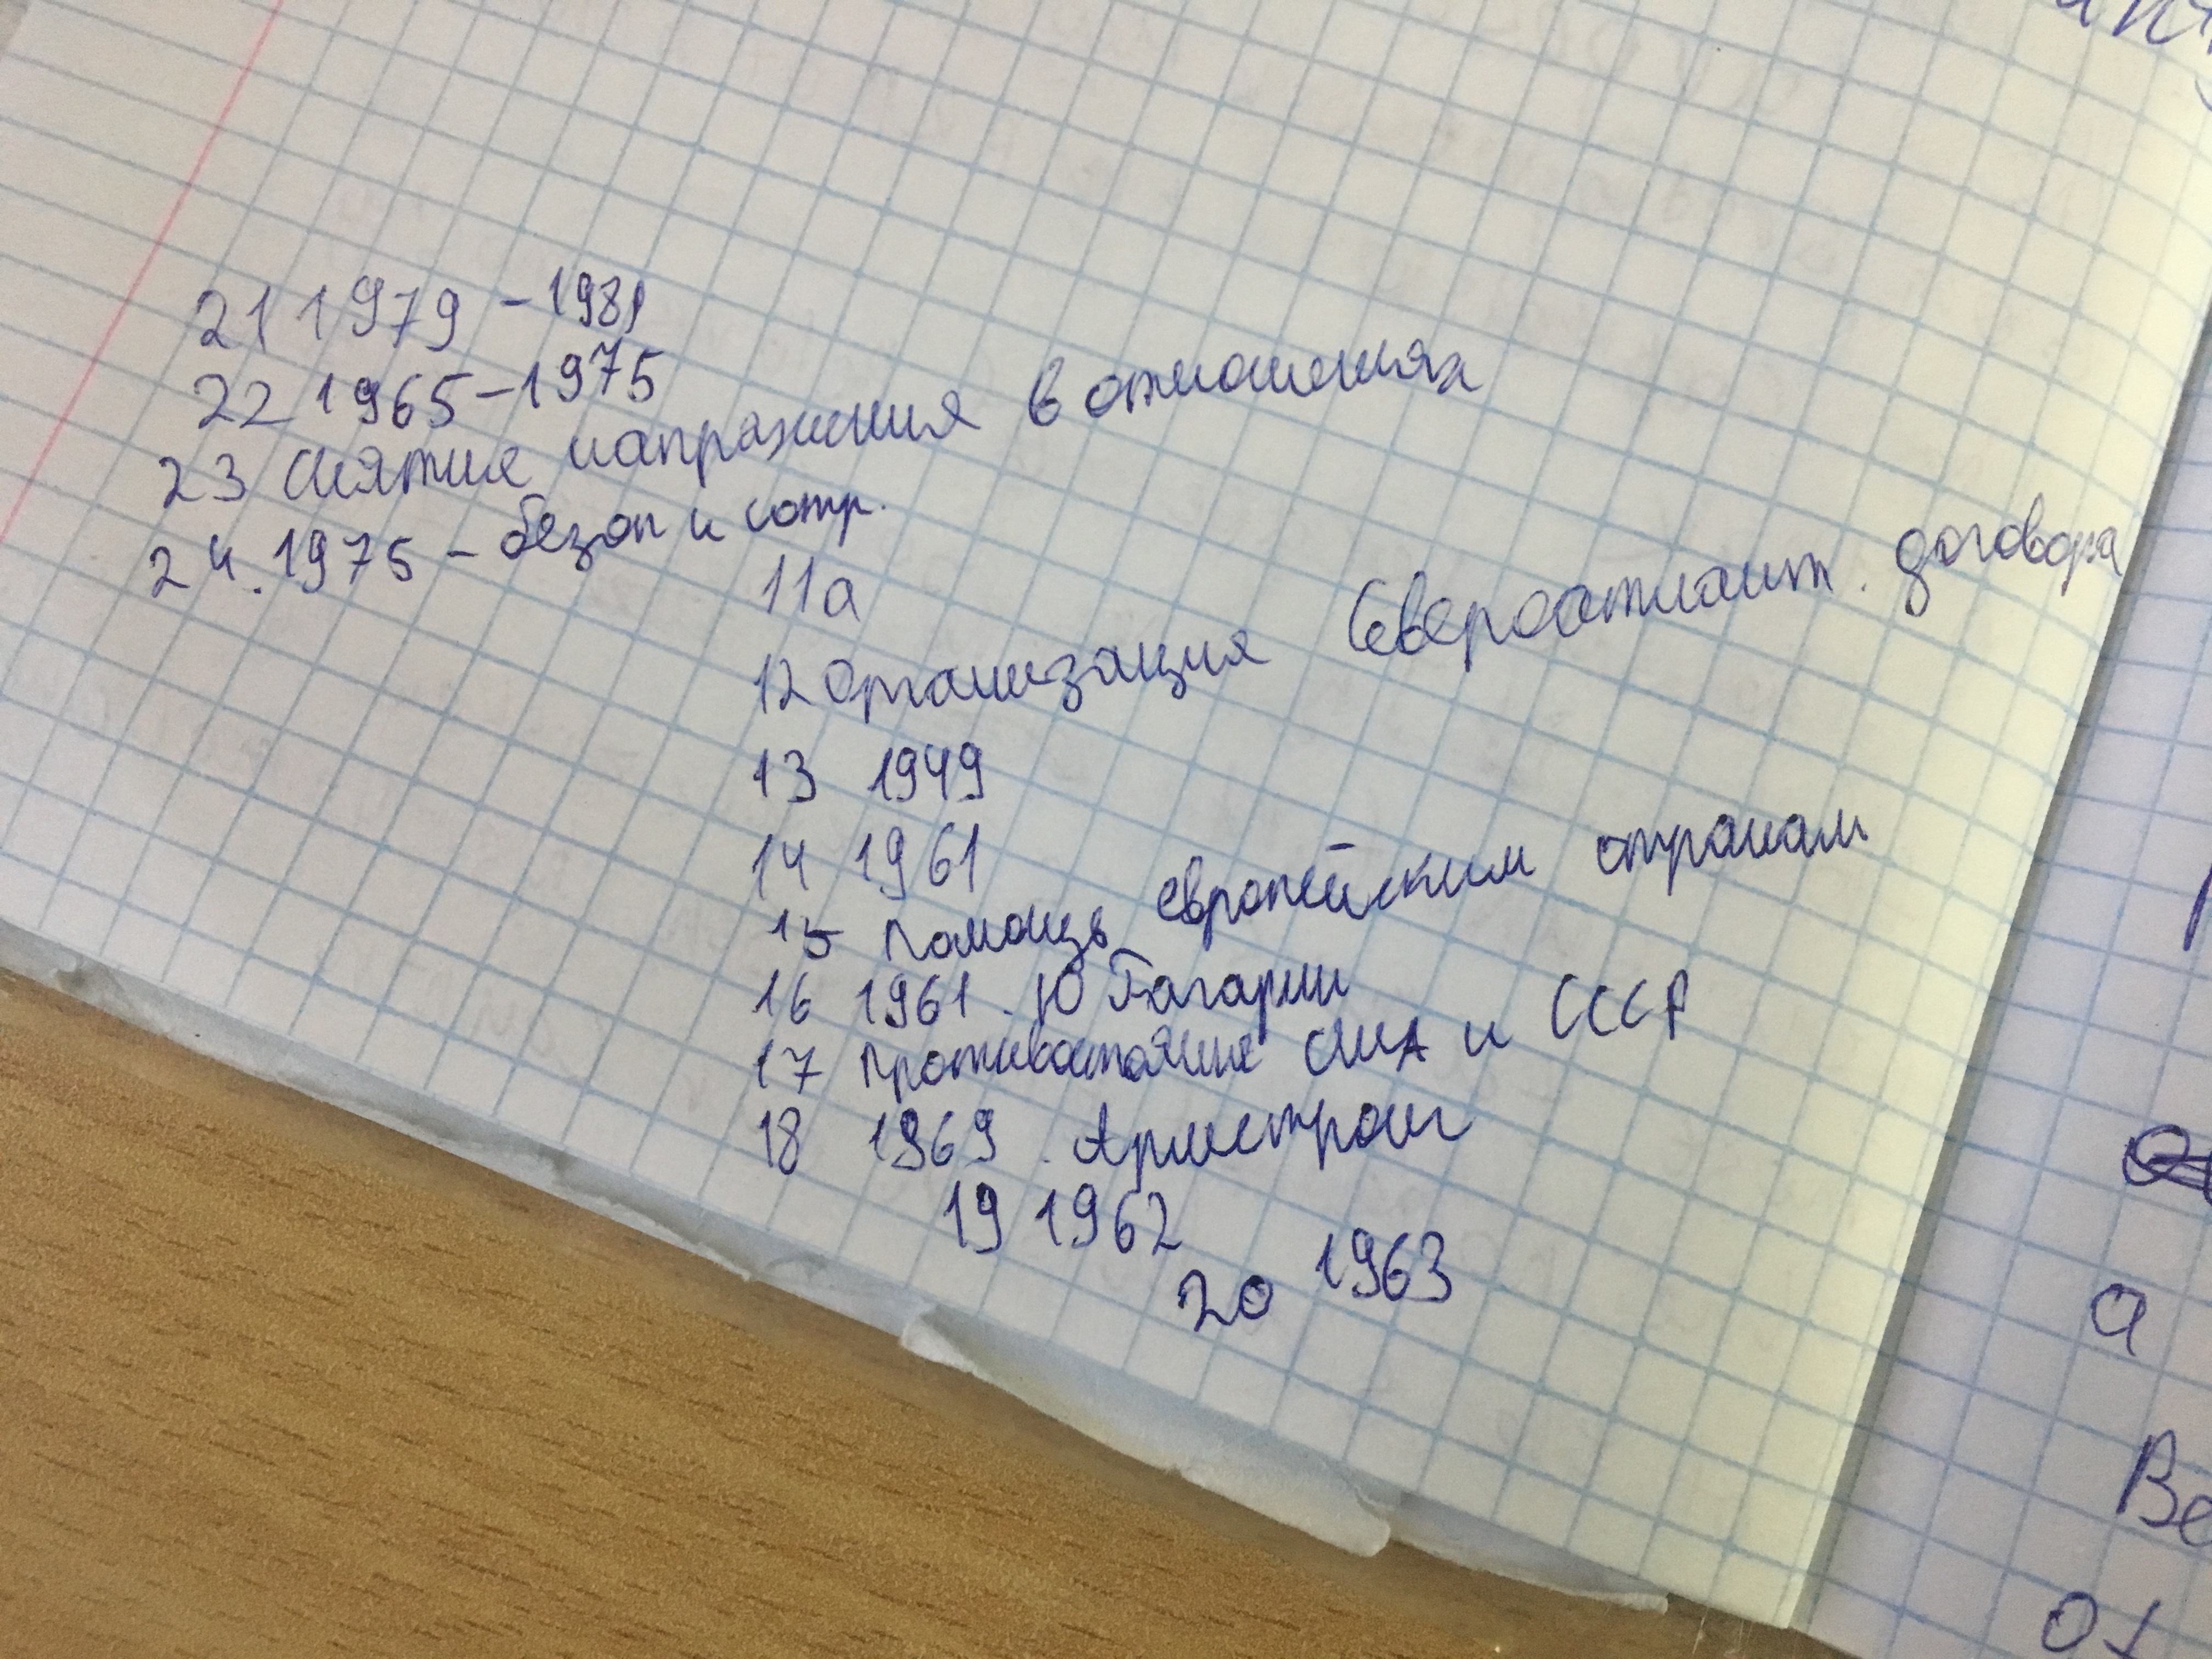 21 1979 - 1989
22 1965-1975
23 снятие напряжения в отношениях
24. 1975 - безоп и сотр.
11а
12 Организация Североатлант. договора
13 1949
14 1961
15 Помощь европейским странам
16 1961. Ю Гагарин
17 Противостояние США и СССР
18 1969. Армстронг
19 1962
20 1963
а
Ве
от